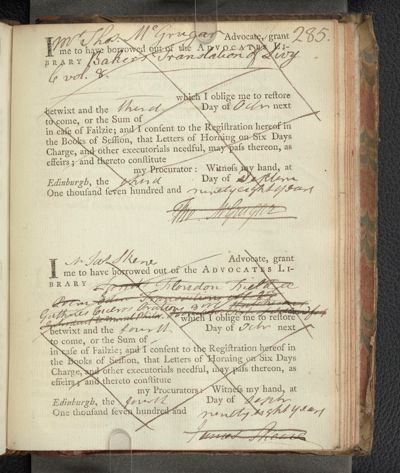 285.
I Mr Thos. McGrugar Advocate, grant
me to have borrowed out of the ADVOCATES LI-
BRARY Bakers Translation of Livy
6 vol. 8.
which I oblige me to restore
betwixt and the third Day of Octr next
to come, or the Sum of
in case of Failzie; and I consent to the Registration hereof in
the Books of Session, that Letters of Horning on Six Days
Charge, and other executorials needful, may pass thereon, as
effeirs; and thereto constitute
my Procurator: Witness my hand, at
Edinburgh, the third Day of
One thousand seven hundred and ninety eight years
Tho. McGrugar
I Mr Jas Skene Advocate, grant
me to have borrowed out of the ADVOCATES LI-
BRARY
Guthries Cicero
which I oblige me to restore
betwixt and the fourth Day of Octr next
to come, or the Sum of
in case of Failzie; and I consent to the Registration hereof in
the Books of Session, that Letters of Horning on Six Days
Charge, and other executorials needful, may pass thereon, as
effeirs; and thereto constitute
my Procurator: Witness my hand, at
Edinburgh, the fourth Day of Septr
One thousand seven hundred and ninety eight years
James Skene